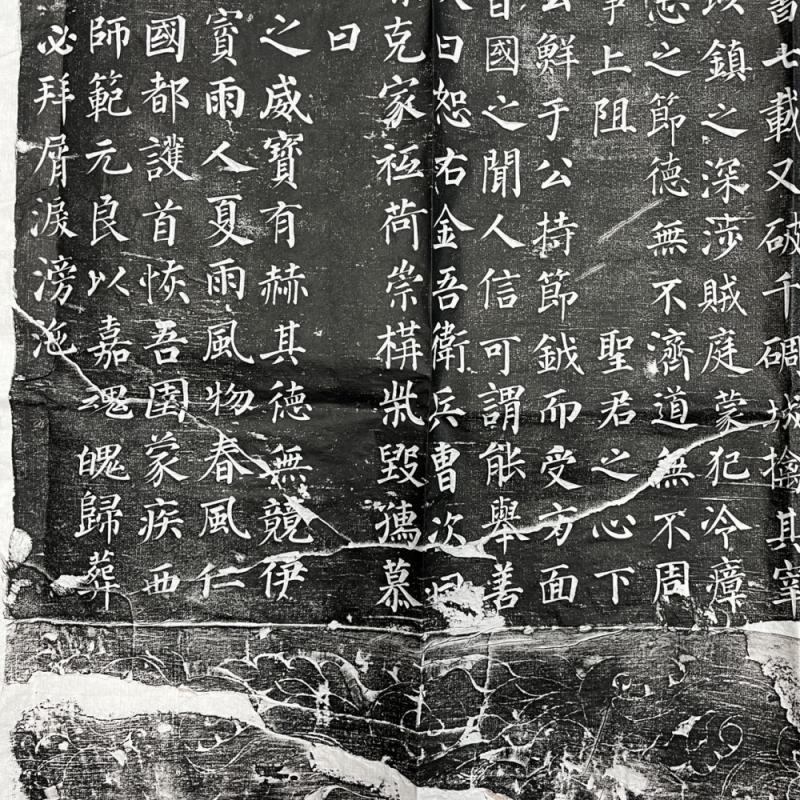 書七載又破千碉城擒其宰
鎮之深涉賊庭蒙犯冷瘴
之節德無不濟道無不周
爭上阻 聖君之心下
公鮮于公持節鉞而受方面
國之聞人信可謂能舉善
曰恕右金吾衛兵曹次曰
克家祗荷崇構柴毀孺慕
曰
之威寶有赫其德無競伊
賨雨人夏雨風物春風仁
國都護首恢吾圉蒙疾西
師範元良以嘉魂魄歸葬
必拜屑淚滂沲